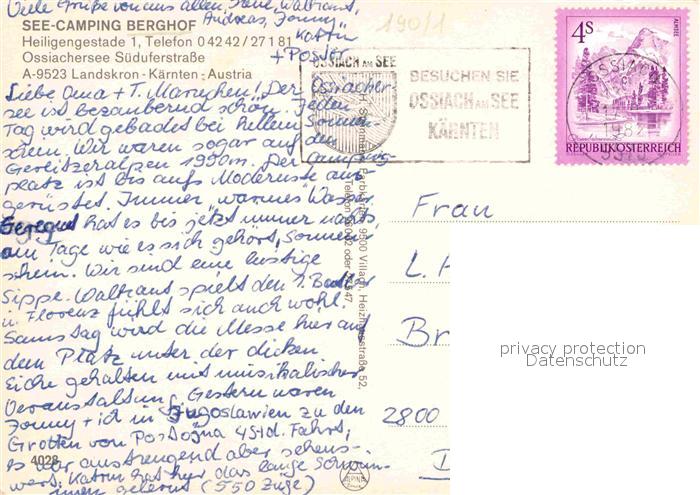 Viele Grüße von uns allen, Eure Waltraut,
Andreas, Jonny,
Katrin
+
190/1
SEE-CAMPING BERGHOF
Heiligengestade 1, Telefon 0 42 42 / 27 1 81
Ossiachersee Süduferstraße
A-9523 Landskron - Kärnten - Austria
Liebe Oma + T. Mariechen! Der Ossiacher-
see ist bezaubernd schön. Jeden
Tag wird gebadet bei hellem Sonnen-
schein. Wir waren sogar auf den
Gerlitzeralpen 1990m. Der Camping-
platz ist bis aufs Modernste aus-
gerüstet. Immer warmes Wasser.
Geregnet hat es bis jetzt immer nachts,
am Tage wie es sich gehört, Sonnen-
schein. Wir sind eine lustige
Sippe. Waltraut spielt den 1.
u. Florenz fühlt sich auch wohl.
Samstag wird die Messe hier auf
dem Platz unter der dicken
Eiche gehalten mit musikalischer
Veranstaltung. Gestern waren
Jonny + ich in Jugoslawien zu den
Grotten von Postojna 4 Std. Fahrt,
es war anstrengend aber sehens-
wert. Katrin hat hier das lange Schwim-
men gelernt (550 Züge)
4028
OSSIACH AM SEE
BESUCHEN SIE
OSSIACH AM SEE
KÄRNTEN
4S
ALMSEE
REPUBLIK ÖSTERREICH
9500 Villach, Heizhausstraße 52,
Frau
L.
Br
2800
privacy protection
Datenschutz